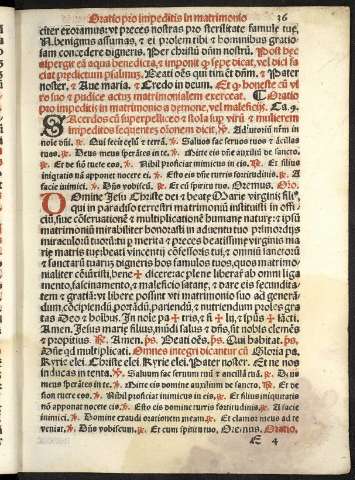 Oratio pro impeditis in matrimonio 36
citer exoramus: vt preces nostras pro sterilitate famule tue,
N. benignus assumas, ⁊ ei prolem tibi ⁊ hominibus gratio/
sam concedere digneris. Per christū dn̄m nostrū. Post hec
aspergit eā aqua benedicta, ⁊ imponit ꝙ sepe dicat, vel dici fa
ciat predictum psalmū. Beati oēs qui timēt dn̄m. ⁊ Pater
noster. ⁊ Aue maria. ⁊ Credo in deum. Et ꝙ honeste cū vi
ro suo ⁊ pudice actus matrimonialem exerceat. ¶ Oratio
pro impeditis in matrimonio a demone, vel maleficijs. Ca. 9.
SAcerdos cū superpelliceo ⁊ stola sup virū ⁊ mulierem
impeditos sequentes, orōnem dicit. ℣. Adiutoriū nrm in
noīe dn̄i. ℟. Qui fecit celū ⁊ terrā. ℣. Saluos fac seruos tuos ⁊ ācillas
tuas. ℟. Deus meus sperātes in te. ℣. Mitte eis dn̄e auxiliū de sancto.
℟. Et de siō tuere eos. ℣. Nihil proficiat inimicus in eis. ℟. Et filius
iniquitatis nō apponat nocere ei. ℣. Esto eis dn̄e turris fortitudinis. ℟. A
facie inimici. ℣. Dn̄s vobiscū. ℟. Et cū spiritu tuo. Oremus. Oro.
DOmine Jesu Christe dei ⁊ beate Marie virginis filiꝰ,
qui in paradiso terrestri matrimoniū instituisti in offi/
ciū, siue cōseruationē ⁊ multiplicationē humane nature: ⁊ ipsū
matrimoniū mirabiliter honorasti in aduentu tuo primordijs
miraculorū tuorū: tu p merita ⁊ preces beatissime virginis ma
rie matris tue, beati vincentij cōfessoris tui, ⁊ omniū sanctorū
⁊ sanctarū tuarū digneris hos famulos tuos, quos matrimo
nialiter cōiūxisti, bene ✠ dicere: ac plene liberare ab omni liga
mento, fascinamento, ⁊ maleficio satane, ⁊ dare eis fecundita
tem ⁊ gratiā: vt libere possint vti matrimonio suo ad generā
dum, cōcipiendū, portādū, pariendū, ⁊ nutriendum proles gra
tas Deo ⁊ hoībus. In noīe pa ✠ tris, ⁊ fi ✠ lij, ⁊ spūs ✠ scti.
Amen. Jesus marie filius, mūdi salus ⁊ dn̄s, sit nobis clemēs
⁊ propitius. ℟. Amen. ps. Beati oēs. ps. Qui habitat. ps.
Dn̄e qd multiplicati. Omnes integri dicantur cū Gloria pa.
Kyrie elei. Christe elei. Kyrie elei. Pater noster. Et ne nos
inducas in tenta. ℣. Saluum fac seruum tuū ⁊ ancillā tuā. ℟. Deus
meus sperātes in te. ℣. Mitte eis domine auxilium de sancto. ℟. Et de
sion tuere eos. ℣. Nihil proficiat inimicus in eis. ℟. Et filius iniquitatis
nō apponat nocere eis. ℣. Esto eis domine turris fortitudinis. ℟. A facie
inimici. ℣. Domine exaudi orationem meam. ℟. Et clamor meus ad te
veniat. ℣. Dn̄s vobiscum. ℟. Et cum spiritu tuo. Oremus. Oratio.
E 4